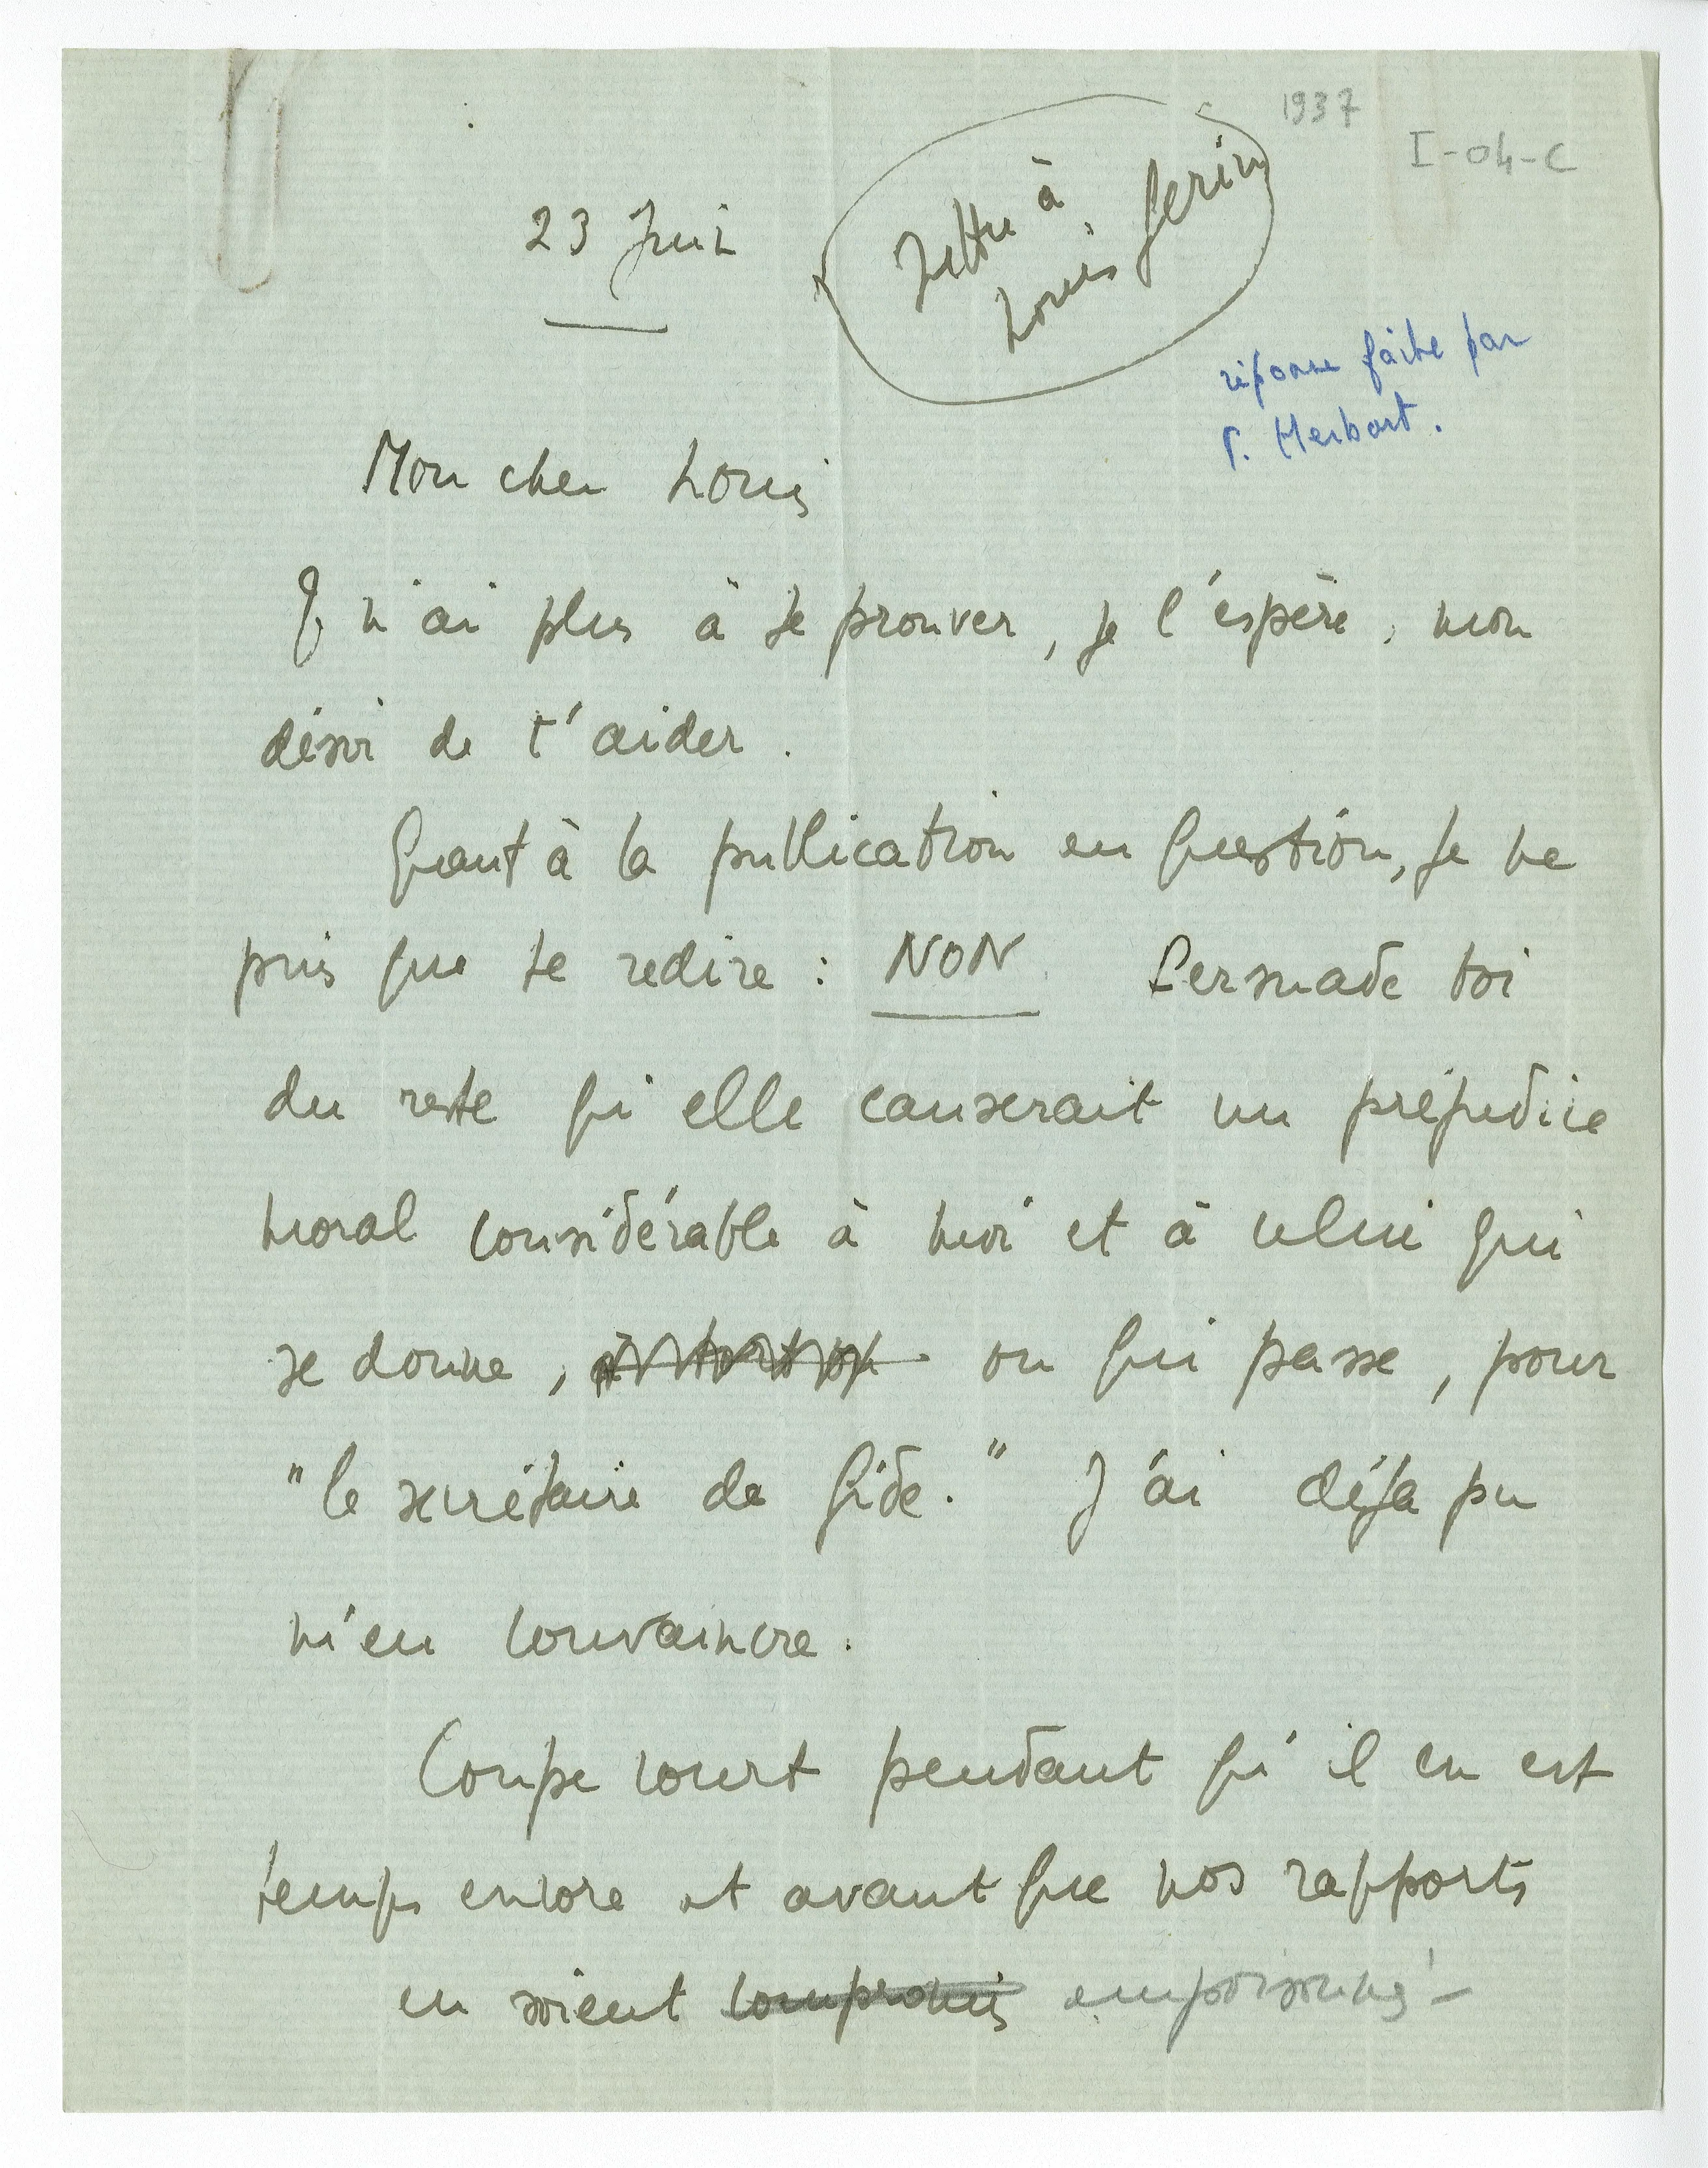 1937
I-04-C
23 Juin
Lettre à
Louis Gérin
réponse faite par
P. Herbart.
Mon cher Louis
Je n'ai plus à te prouver, je l'espère, mon
désir de t'aider.
Quant à la publication en question, je ne
puis que te redire : NON Persuade toi
du reste qu'elle causerait un préjudice
moral considérable à moi et à celui qui
se donne, à tort ou ou qui passe, pour
"le secrétaire de Gide." J'ai déjà pu
m'en convaincre.
Coupe court pendant qu'il en est
temps encore et avant que nos rapports
en soient compromis empoisonnés –